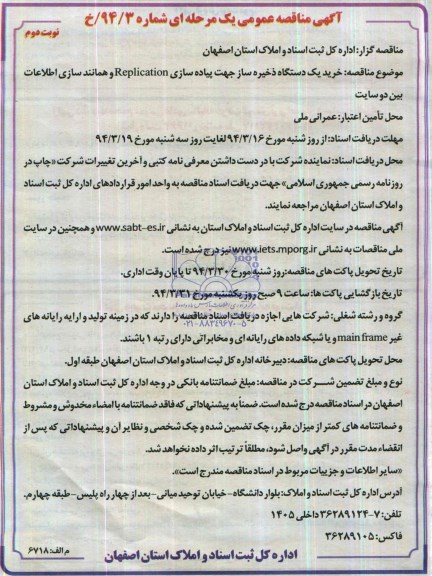 آگهی مناقصه عمومی یک مرحله ای شماره ۹۴/۳/خ
نوبت دوم
مناقصه گزار: اداره کل ثبت اسناد و املاک استان اصفهان
موضوع مناقصه: خرید یک دستگاه ذخیره ساز جهت پیاده سازی Replication و همانند سازی اطلاعات
بین دو سایت
محل تأمین اعتبار: عمرانی ملی
مهلت دریافت اسناد: از روز شنبه مورخ ۹۴/۳/۱۶ لغایت روز سه شنبه مورخ ۹۴/۳/۱۹
محل دریافت اسناد: نماینده شرکت با در دست داشتن معرفی نامه کتبی و آخرین تغییرات شرکت «چاپ در
روزنامه رسمی جمهوری اسلامی» جهت دریافت اسناد مناقصه به واحد امور قراردادهای اداره کل ثبت اسناد
و املاک استان اصفهان مراجعه نمایند.
آگهی مناقصه در سایت اداره کل ثبت اسناد و املاک استان به نشانی www.sabt-es.ir و همچنین در سایت
ملی مناقصات به نشانی www.iets.mporg.ir نیز درج شده است.
تاریخ تحویل پاکت های مناقصه: روز شنبه مورخ ۹۴/۳/۳۰ تا پایان وقت اداری.
تاریخ بازگشایی پاکت ها: ساعت ۹ صبح روز یکشنبه مورخ ۹۴/۳/۳۱.
گروه و رشته شغلی: شرکت هایی اجازه دریافت اسناد مناقصه را دارند که در زمینه تولید و ارایه رایانه های
غیر main frame و یا شبکه داده های رایانه ای و مخابراتی دارای رتبه ۱ باشند.
۰۲۱-۸۸۳۴۹۶۷۰-۵
محل تحویل پاکت های مناقصه: دبیرخانه اداره کل ثبت اسناد و املاک استان اصفهان طبقه اول.
نوع و مبلغ تضمین شرکت در مناقصه: مبلغ ضمانتنامه بانکی در وجه اداره کل ثبت اسناد و املاک استان
اصفهان در اسناد مناقصه درج شده است. ضمناً به پیشنهاداتی که فاقد ضمانتنامه با امضاء مخدوش و مشروط
و ضمانتنامه های کمتر از میزان مقرر، چک تضمین شده و چک شخصی و نظایر آن و پیشنهاداتی که پس از
انقضاء مدت مقرر در آگهی واصل شود، مطلقاً ترتیب اثر داده نخواهد شد.
«سایر اطلاعات و جزییات مربوط در اسناد مناقصه مندرج است».
آدرس اداره کل ثبت اسناد و املاک: بلوار دانشگاه- خیابان توحید میانی- بعد از چهار راه پلیس- طبقه چهارم.
تلفن: ۷-۳۶۲۸۹۱۲۴ داخلی ۱۴۰۵
فاکس: ۳۶۲۸۹۱۰۵
م الف: ۶۷۱۸
اداره کل ثبت اسناد و املاک استان اصفهان